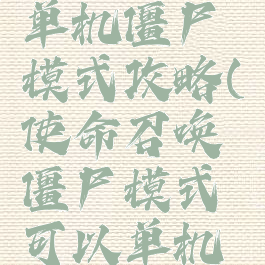 单机僵尸
模式攻略(
使命召唤
僵尸模式
可以单机